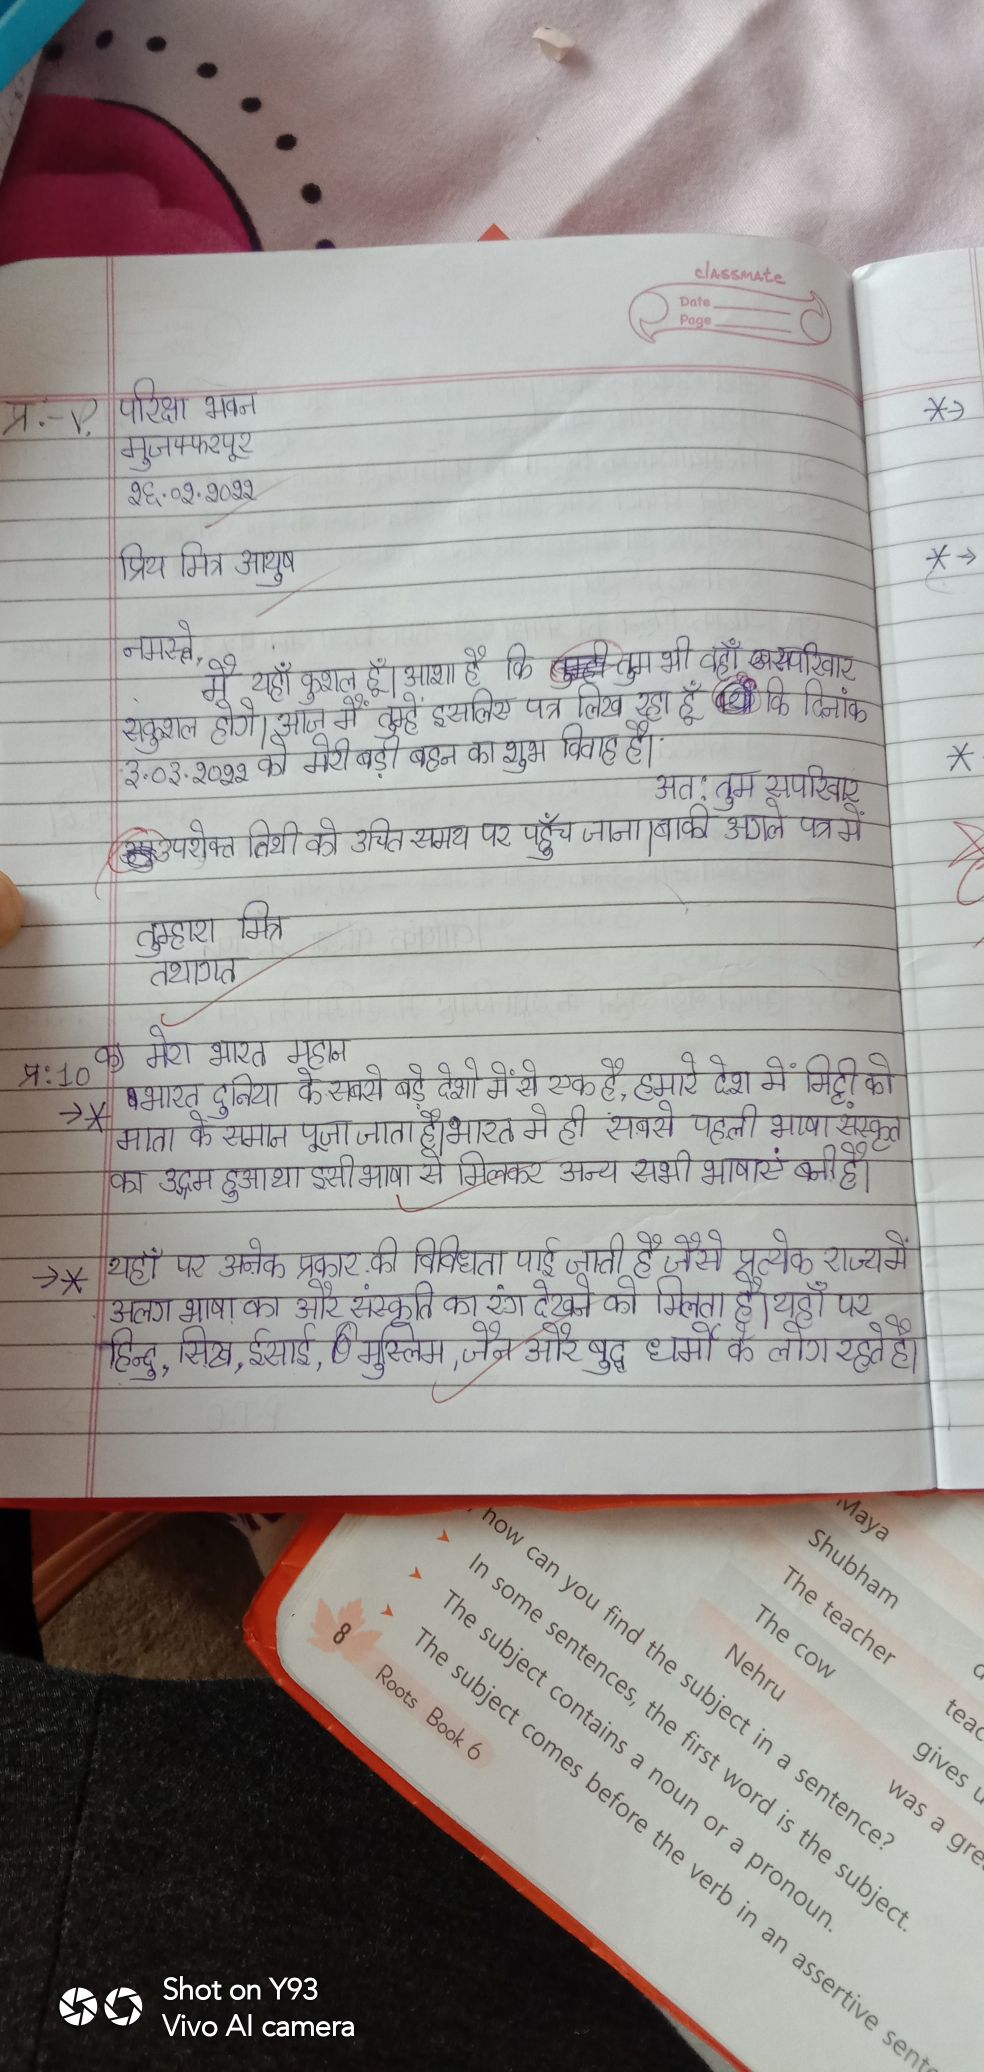 classmate
Date
Page
प्र:- ९.
परिक्षा भवन
मुजफ्फरपूर
२६.०२.२०२२
प्रिय मित्र आयुष
नमस्ते,
मैं यहाँ कुशल हूँ। आशा है कि तुम भी वहाँ सपरिवार
सकुशल होगे। आज मैं तुम्हें इसलिए पत्र लिख रहा हूँ कि दिनांक
३.०३.२०२२ को मेरी बड़ी बहन का शुभ विवाह है।
अत: तुम सपरिवार
उपरोक्त तिथी को उचित समय पर पहुँच जाना। बाकी अगले पत्र में
तुम्हारा मित्र
तथागत
प्र:10 क) मेरा भारत महान
→* भारत दुनिया के सबसे बड़े देशो में से एक है, हमारे देश में मिट्टी को
माता के समान पूजा जाता है। भारत मे ही सबसे पहली भाषा संस्कृत
का उद्गम हुआ था इसी भाषा से मिलकर अन्य सभी भाषाएं बनी है।
→* यहाँ पर अनेक प्रकार की विविधता पाई जाती है जैसे प्रत्येक राज्य में
अलग भाषा का और संस्कृति का रंग देखने को मिलता है। यहाँ पर
हिन्दु, सिख, ईसाई, मुस्लिम, जैन और बुद्ध धर्मो के लोग रहते है।
*→
*→
*
how can you find the subject in a sentence?
In some sentences, the first word is the subject.
The subject contains a noun or a pronoun.
The subject comes before the verb in an assertive
8
Roots Book 6
Maya
Shubham
The teacher
The cow
Nehru
gives
was a
Shot on Y93
Vivo AI camera